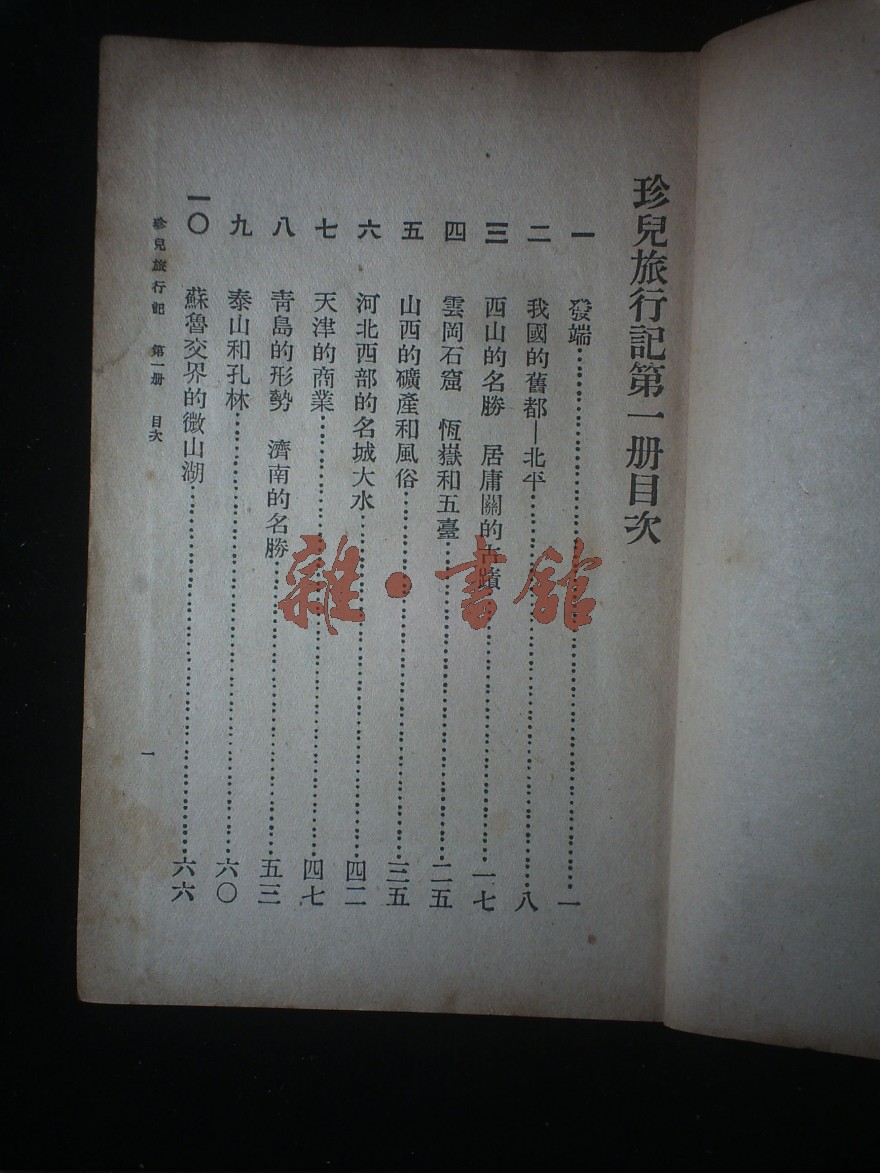 珍兒旅行記第一册目次
一 發端……一
二 我國的舊都—北平……八
三 西山的名勝 居庸關的古蹟……一七
四 雲岡石窟 恆嶽和五臺……二五
五 山西的礦產和風俗……三五
六 河北西部的名城大水……四二
七 天津的商業……四七
八 靑島的形勢 濟南的名勝……五三
九 泰山和孔林……六〇
一〇 蘇魯交界的微山湖……六六
珍兒旅行記 第一册 目次
一
雜·書館